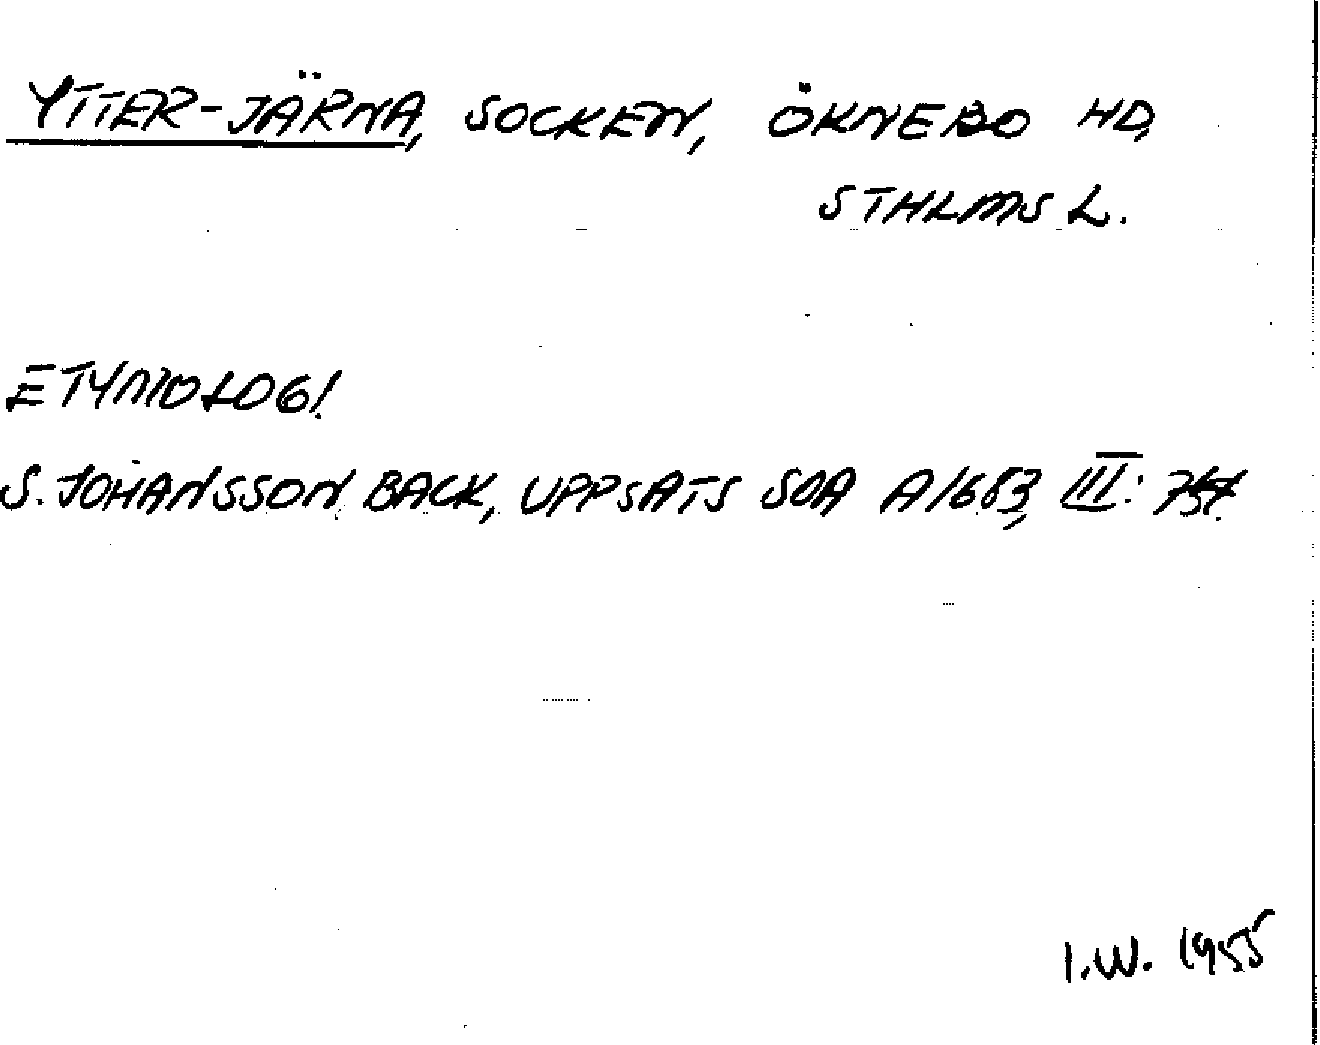 YTTER-JÄRNA, SOCKEN, ÖKNEBO HD,
STHLMS L.
ETYMOLOGI.
S. JOHANSSON BACK, UPPSATS SOA A1683, III:
I.W. 1955